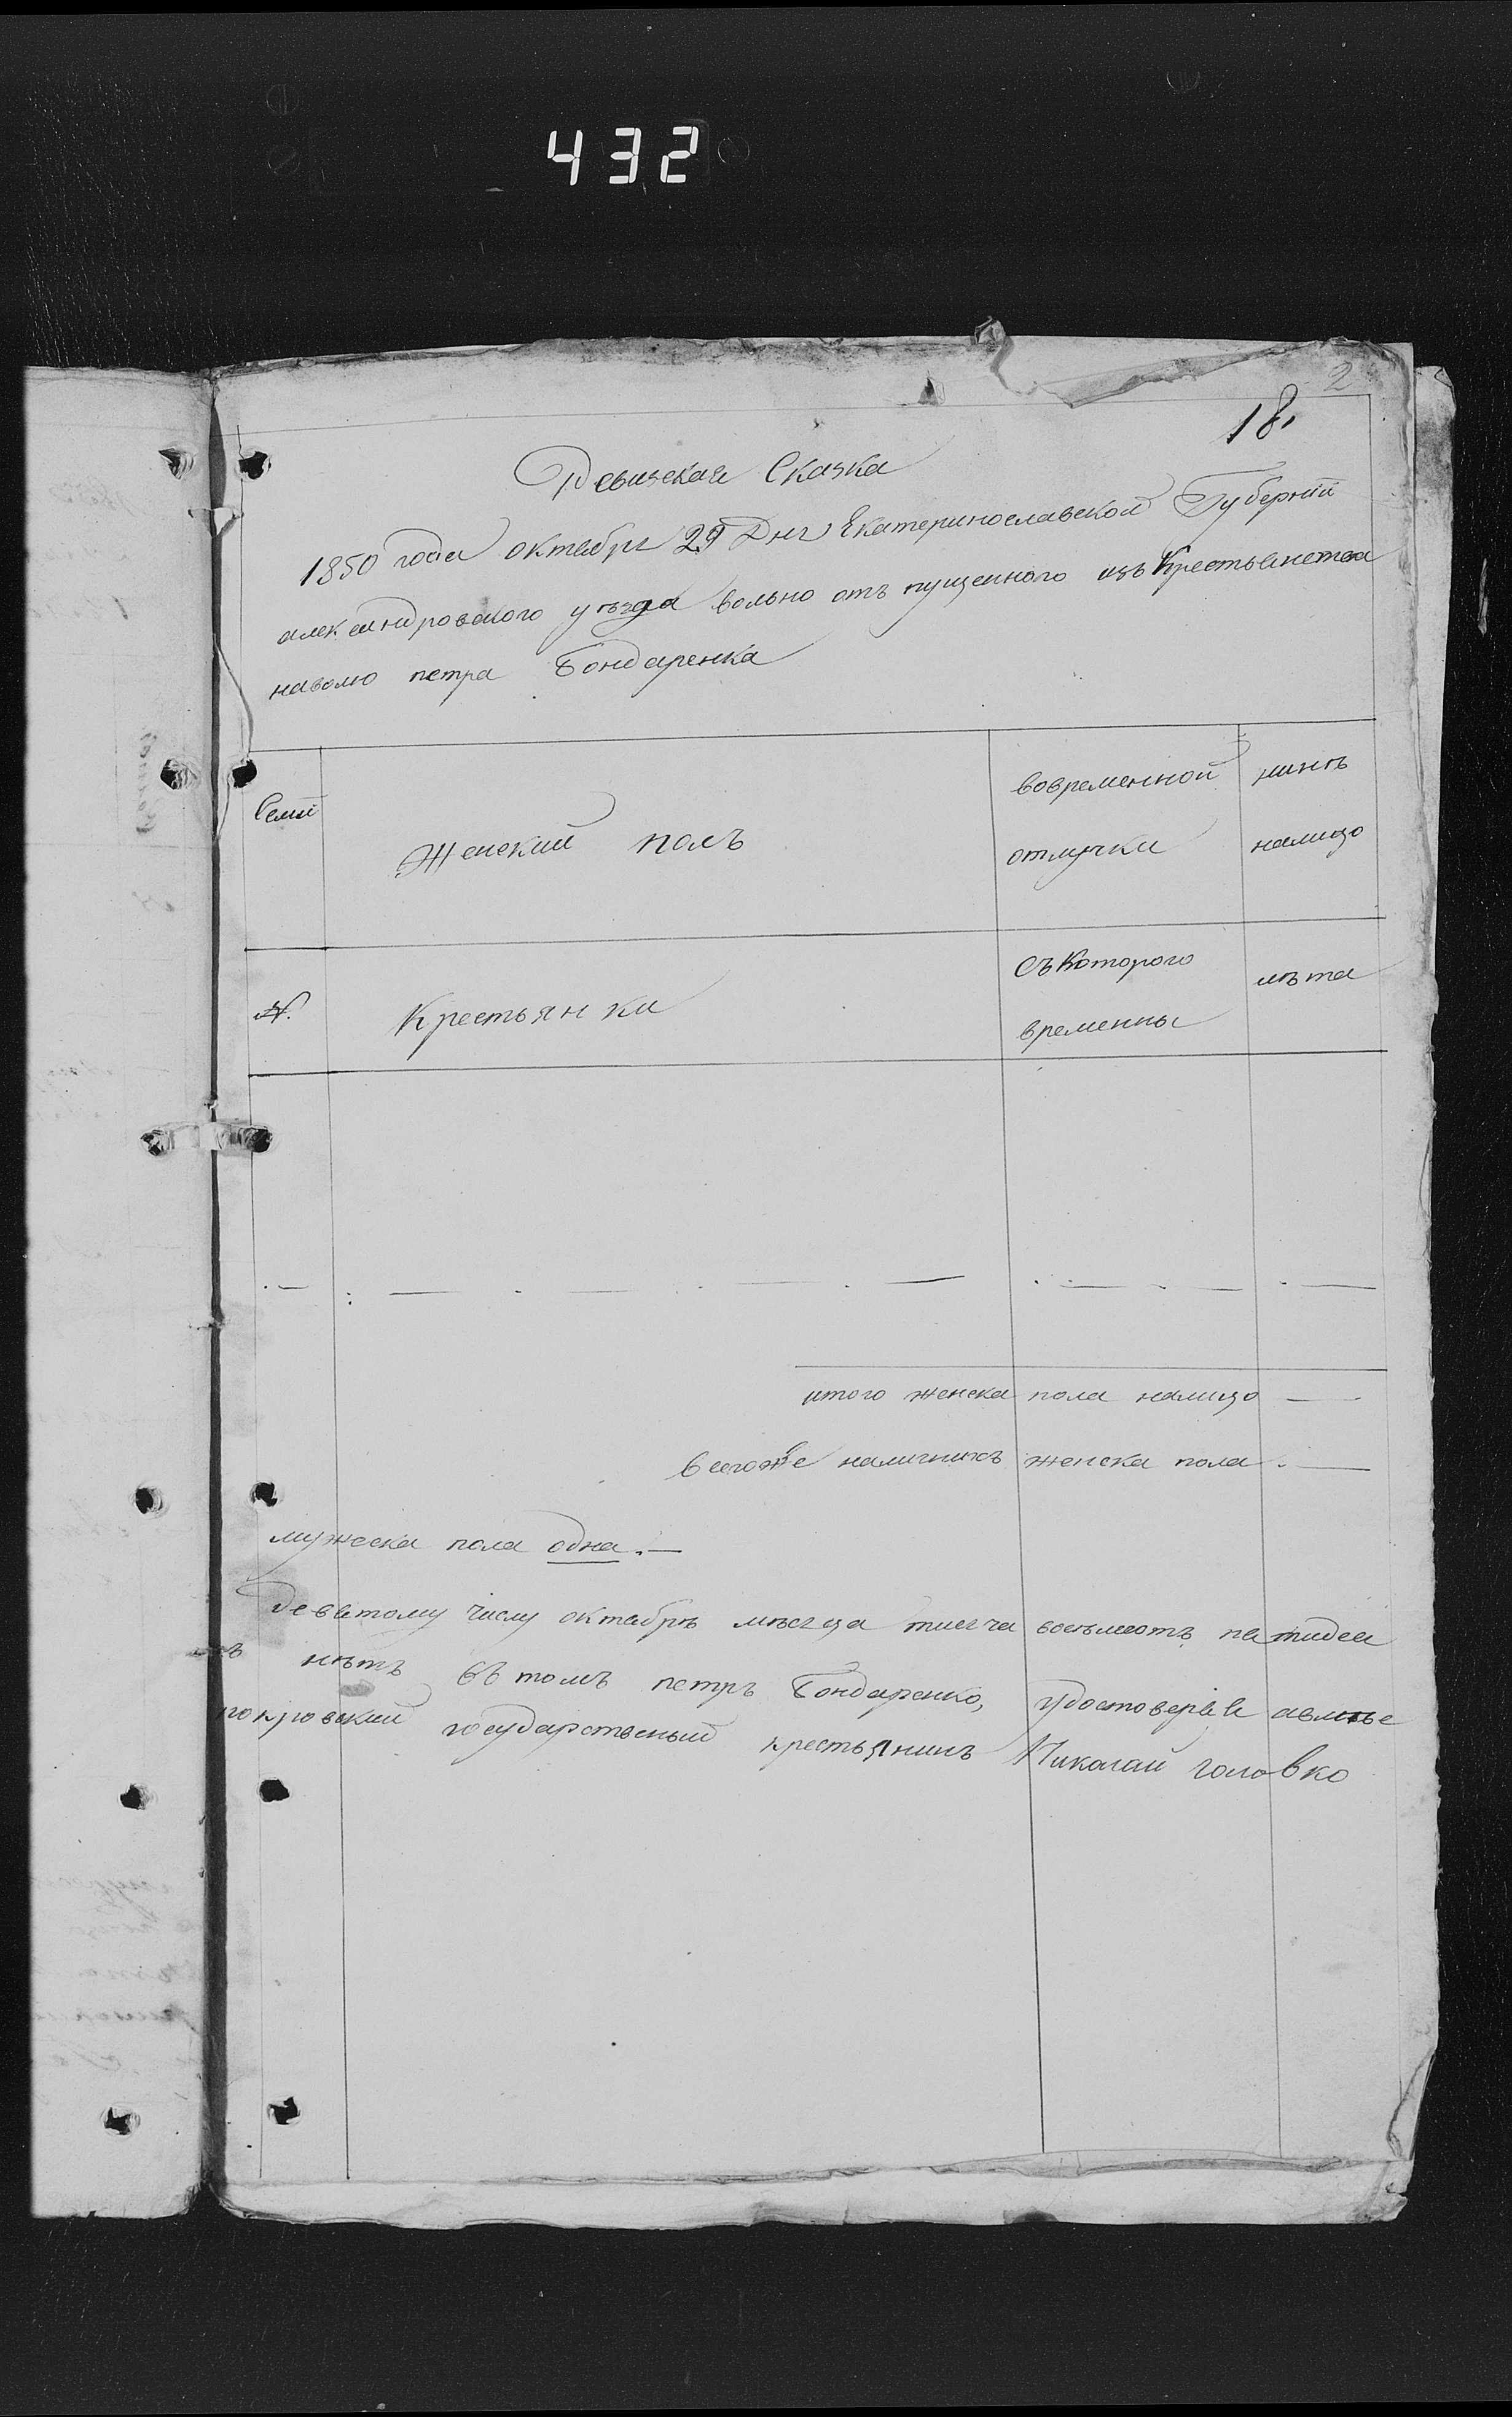 432
2
18.
Ревизская Сказка
1850 года октября 29 Дня Екатеринославской Губернии
александровского уѣзда вольно отъ пущенного изъ Крестьянства
наволю петра Бондаренка
Семьи
Женский полъ
вовременной
отлучки
нинѣ
налицо
№.
Крестьянки
Съ Которого
временны
лѣта
итого женска пола налицо —
всегоже наличнихъ женска пола. —
мужеска пола одна. —
девятому числу октября мѣсяца тисяча восемьсотъ пятидеся
нѣтъ въ томъ петръ Бондаренко,
покровский государственый крестьянинъ Николай головко